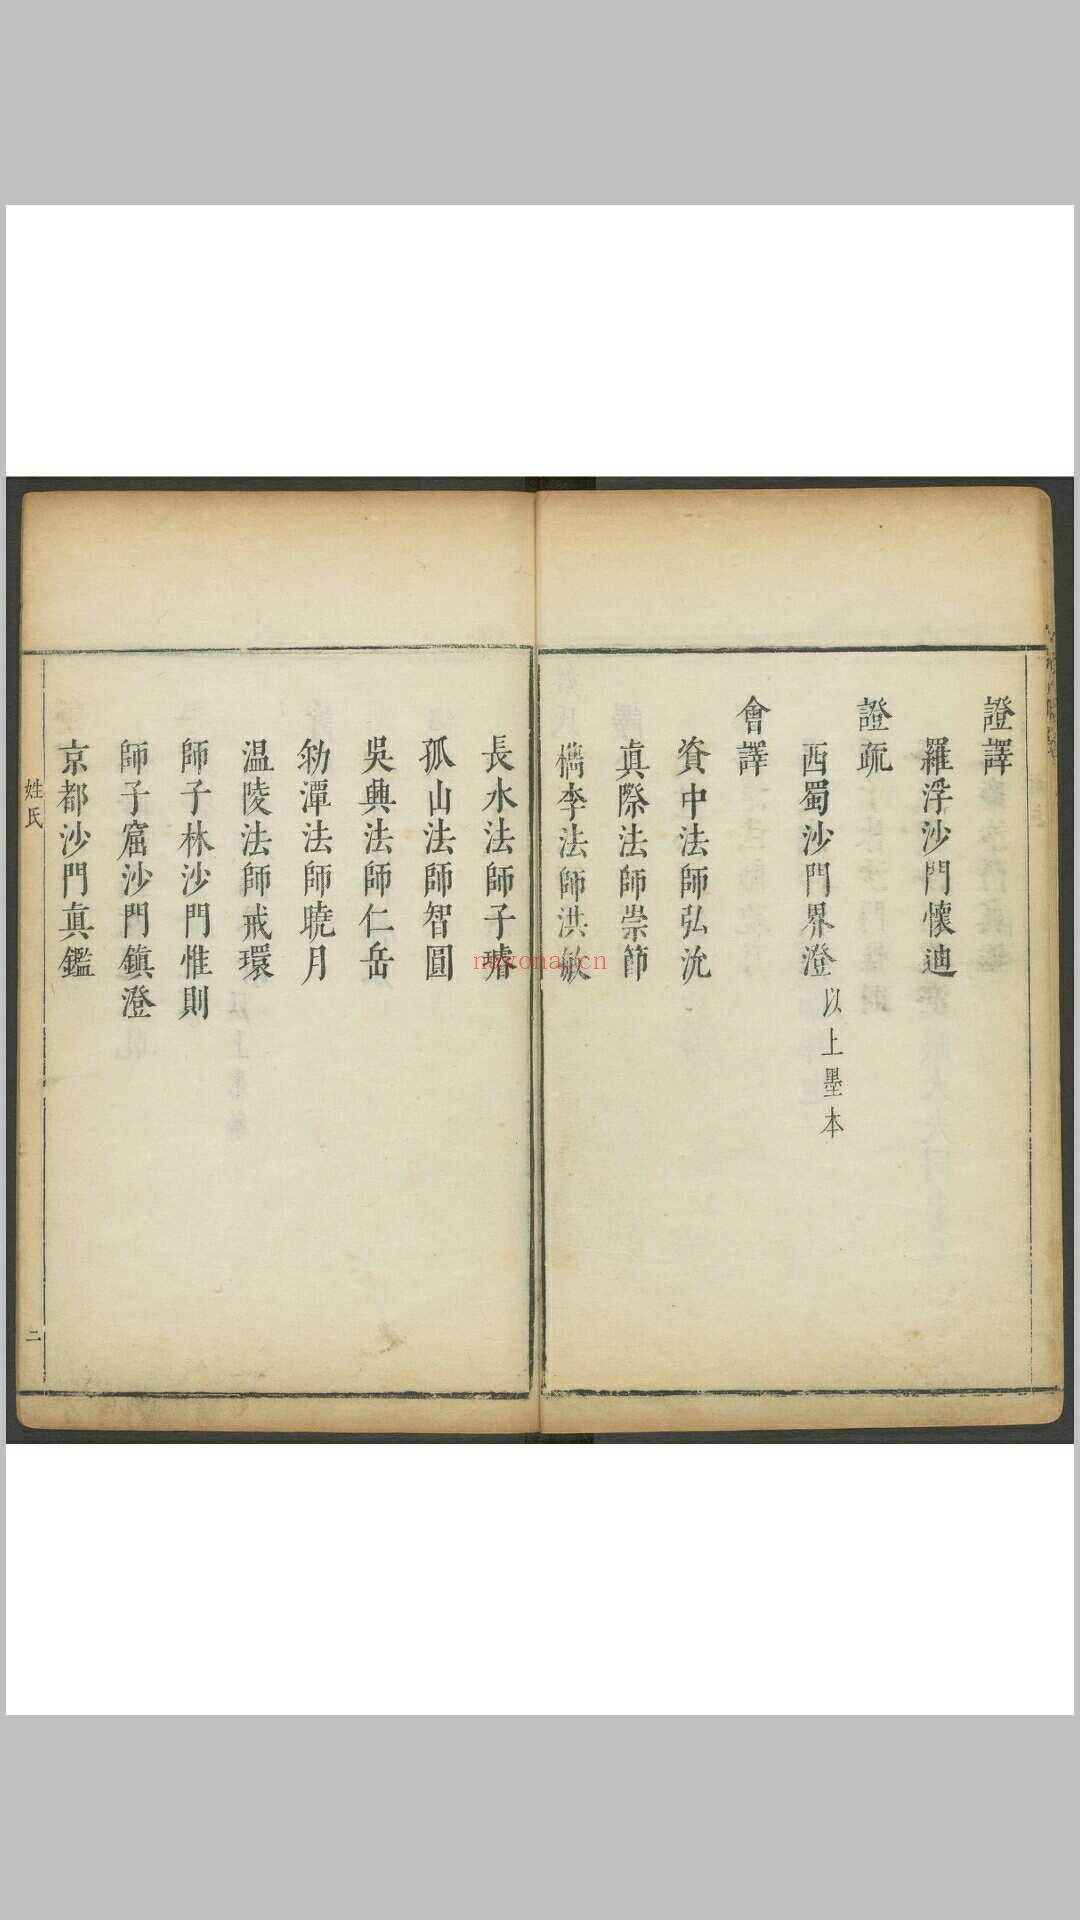 證譯
羅浮沙門懷迪
證疏
西蜀沙門界澄以上墨本
會譯
資中法師弘沇
真際法師崇節
檇李法師洪敏
長水法師子璿
孤山法師智圓
吳興法師仁岳
泐潭法師曉月
温陵法師戒環
師子林沙門惟則
師子窟沙門鎮澄
京都沙門真鑑
姓氏
二
nayona.cn